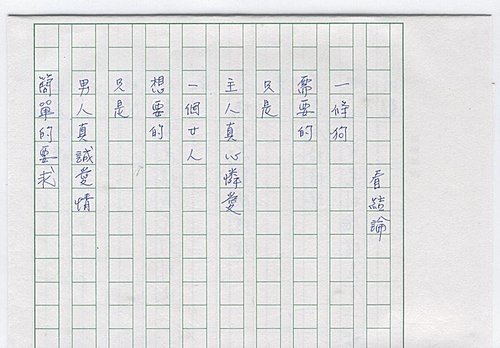 看結論
一條狗
需要的
只是
主人真心憐愛
一個女人
想要的
只是
男人真誠愛情
簡單的要求